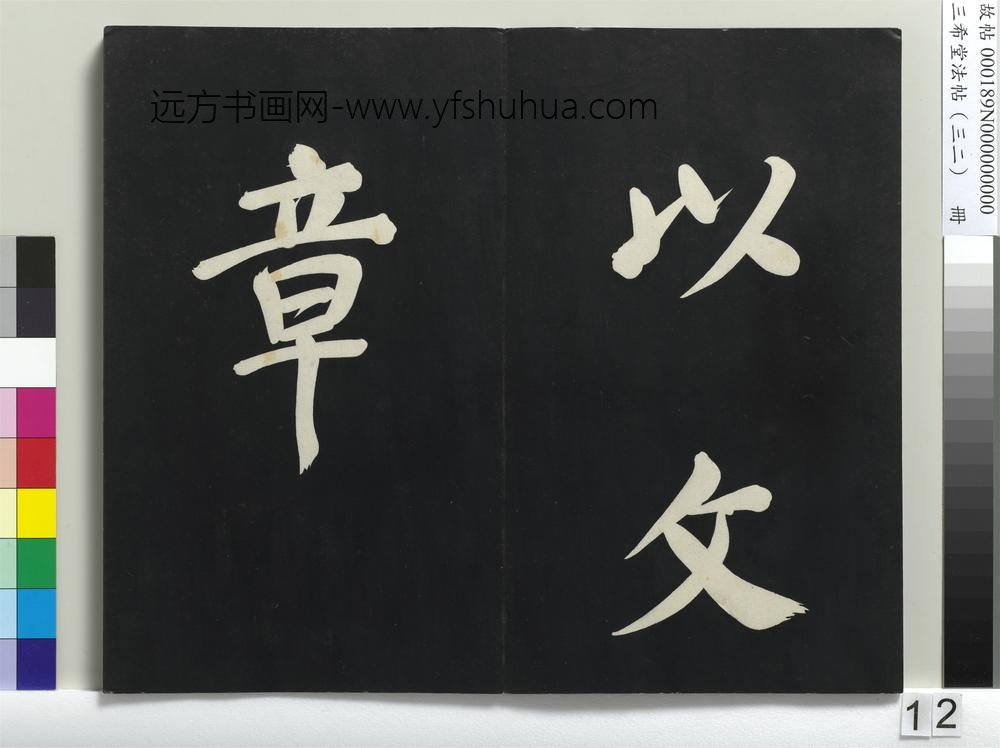 以文
章
远方书画网-www.yfshuhua.com
故帖 000189N000000000
三希堂法帖（三二） 冊
12